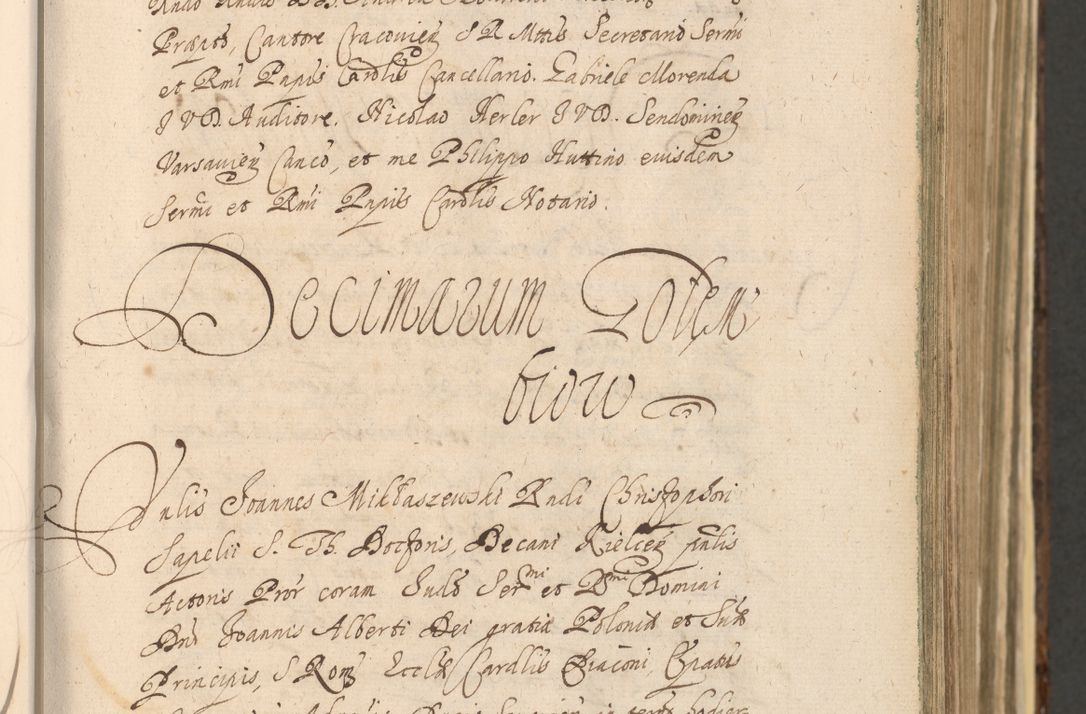 Præpto, Cantore Cracovien S R Mttis Secretario Sermi
et Rmi Pnpis Cardlis Cancellario. Gabriele Morenda
J V D. Auditore. Nicolao Herler J V D. Sendomirien
Varsavien Canco, et me Philippo Huttino eiusdem
Sermi et Rmi Pnpis Cardlis Notario.
Decimarum Golem
biow
Nblis Joannes Mikłaszewski Rndi Christophori
Sapelii S. Th. Doctoris, Decani Kielcen pntis
Actoris Pror coram Judo Sermi et Rmi Domini
Dni Joannis Alberti Dei gratia Poloniæ et Suæ
Principis, S Rom Ecclæ Cardlis Diaconi, Epatus